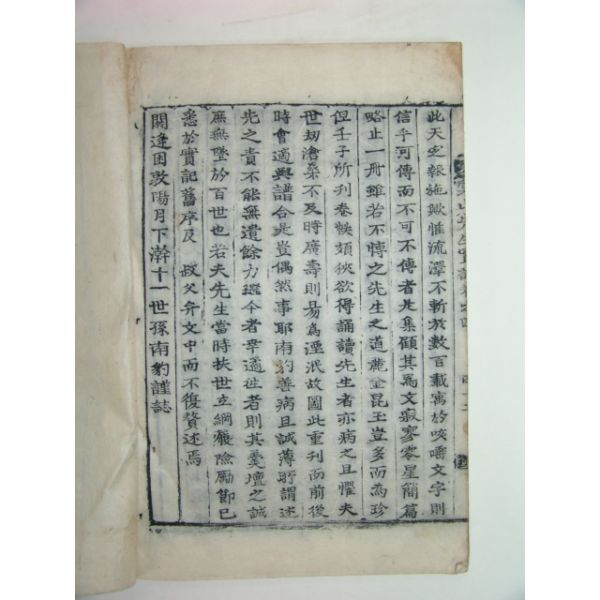 此天之報施歟惟流澤不斬於數百載寓於咳嚼文字則
信乎可傳而不可不傳者是集顧其爲文寂寥零星簡篇
略止一冊雖若不愽之先生之道麗金昆玉豈多而為珍
但壬子所刊卷帙頗秩欲得誦讀先生者亦病之且懼夫
世刼滄桑不及時廣壽則易爲湮泯故圖此重刊而前後
時會適與譜合是豈偶然事耶南豹善病且誠薄盱謂述
先之責不能無遺餘力今者幸適往者則其羹墻之誠
庶無墜於百世也若夫先生當時扶世立綱礪節已
悉於實記舊序及 叔父弁文中而不復贅述焉
閼逢困敦陽月下澣十一世孫南豹謹誌